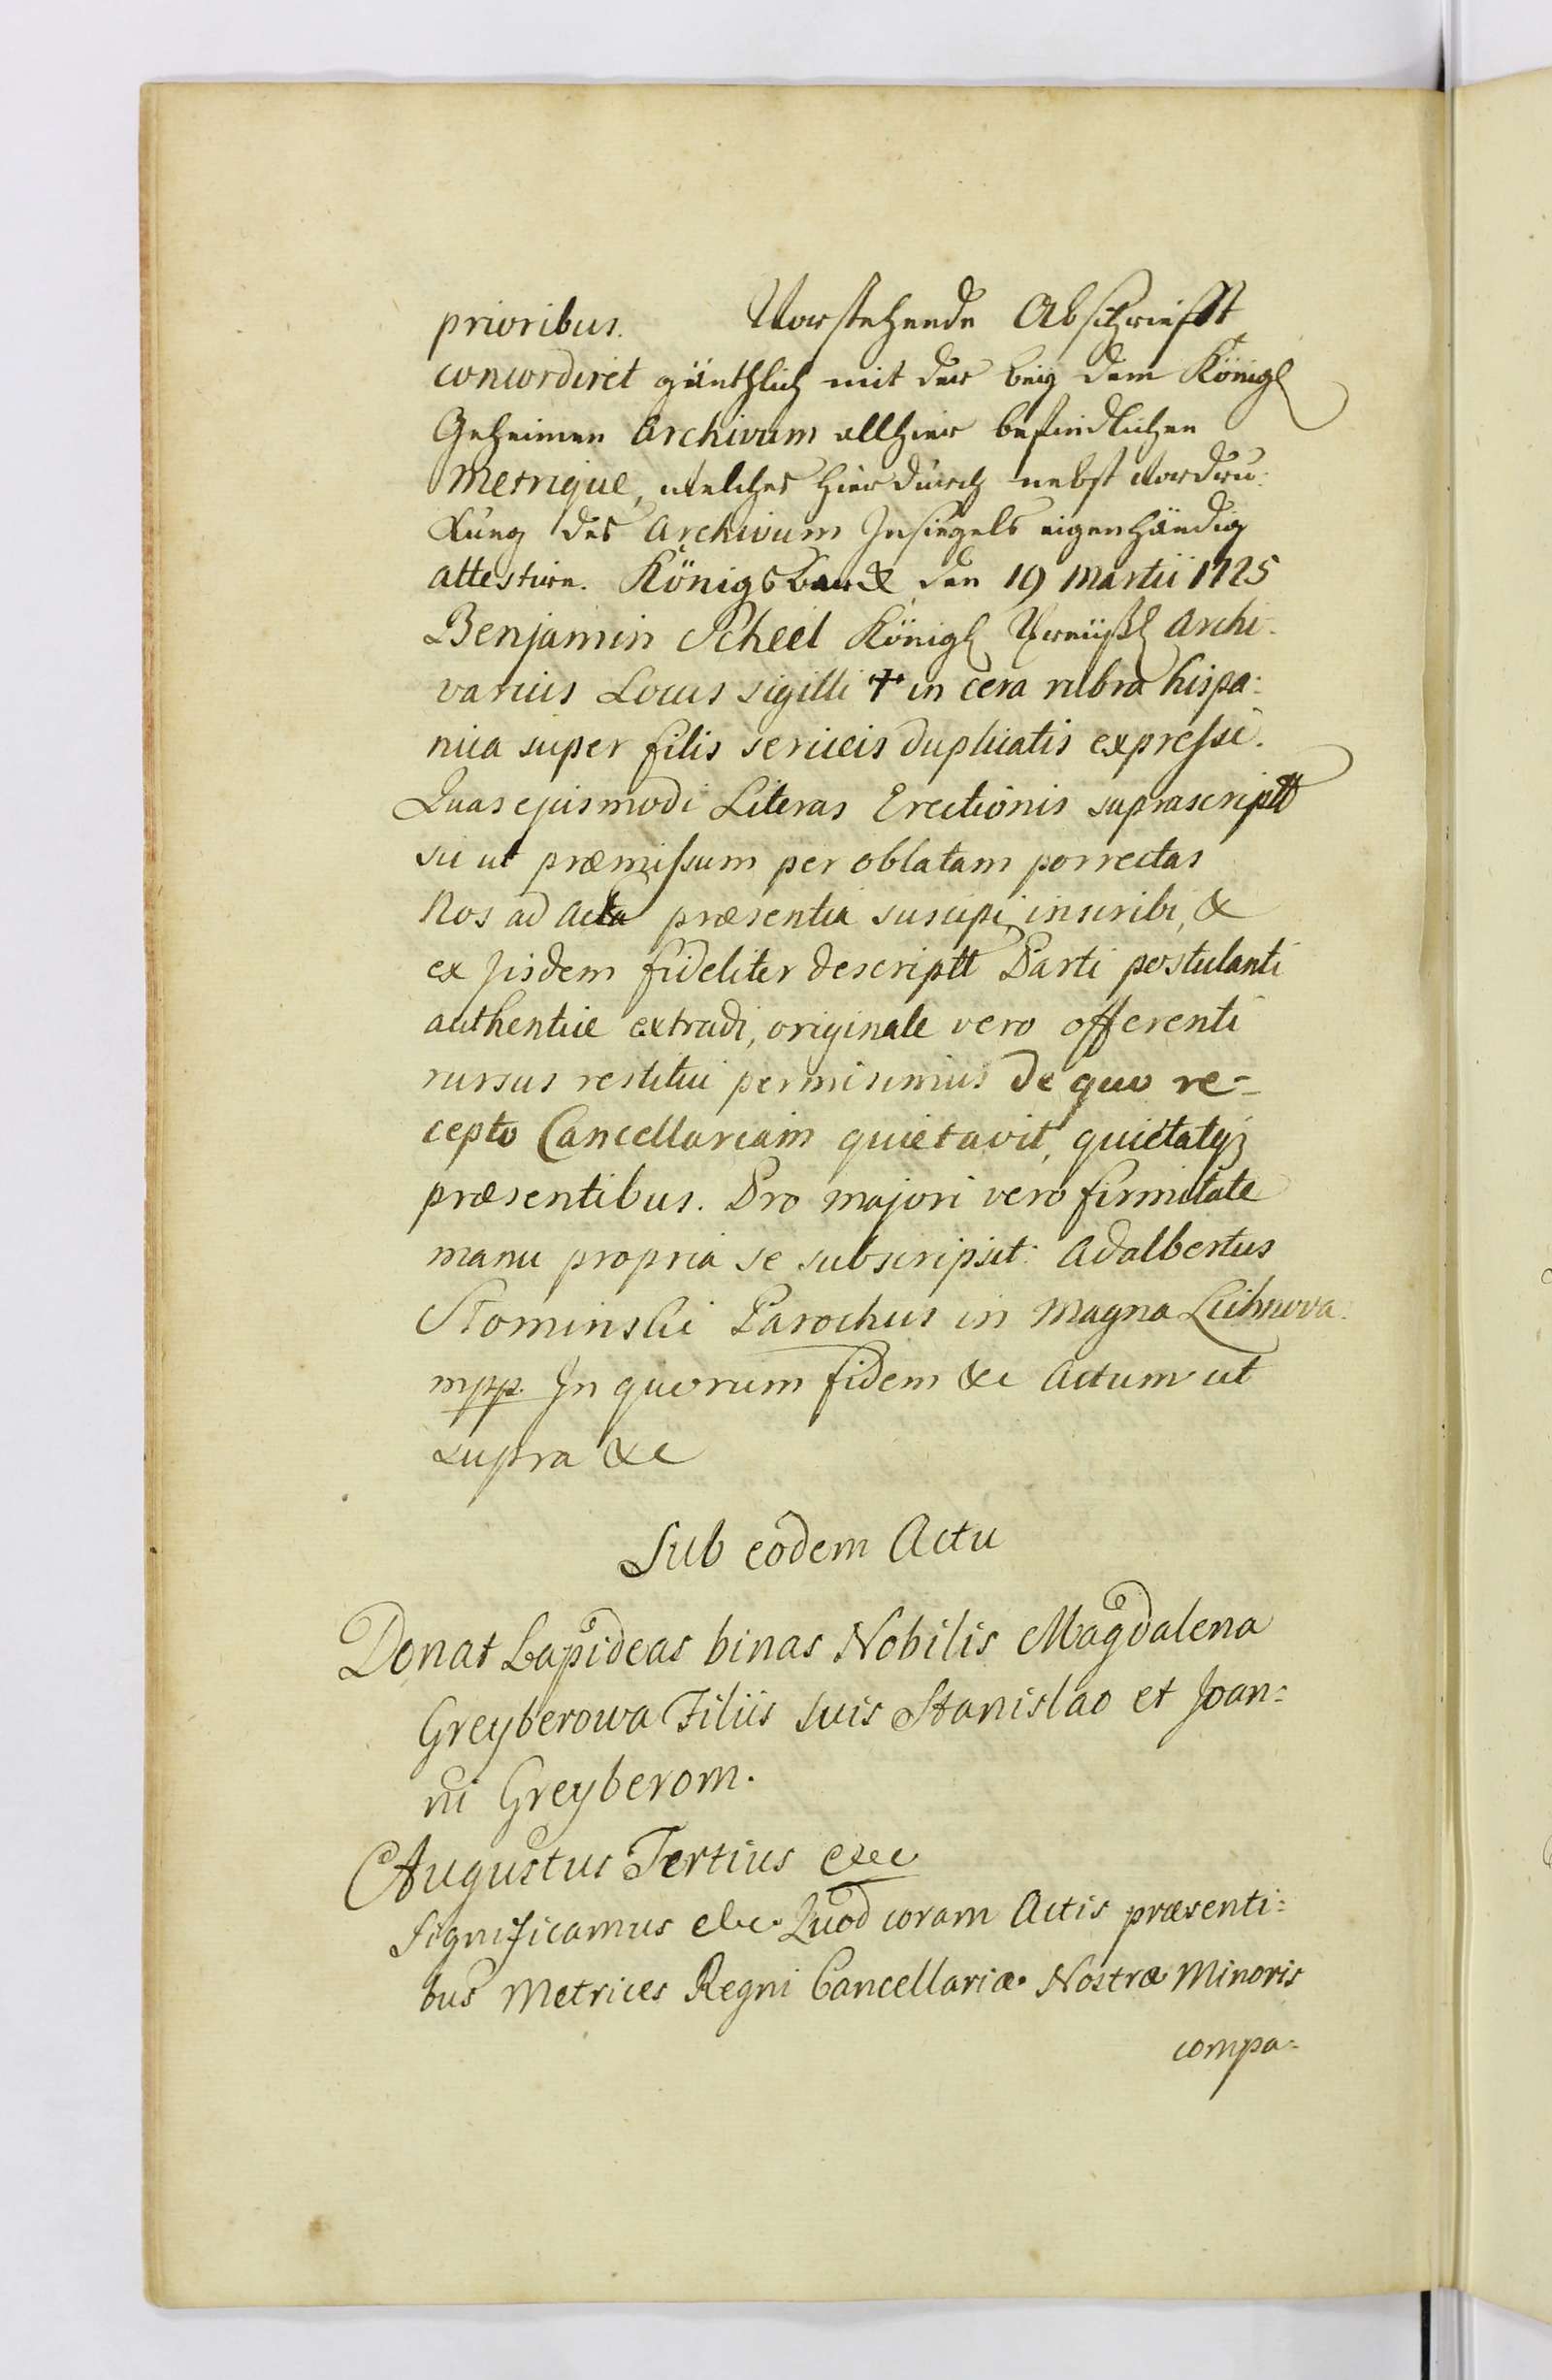 prioribus. Vorstehende Abschriefft
concordiret gäntzlich mit der beÿ dem Königl
Geheimen Archivum allhier befindlichen
Metrique, welches hierdurch nebst vordru:
kung des Archivum Insiegels eigenhändig
attestire. Königsberg den 19 Martii 1725
Benjamin Scheel Königl Preüßl Archi:
varius Locus sigilli ✝ in cera rubra hispa:
nica super filis sericeis duplicatis expressi.
Quas ejusmodi Literas Erectionis suprascriptt
sic ut præmissum per oblatam porrectas
Nos ad Acta præsentia suscipi, inscribi, &
ex Iisdem fideliter descriptt Parti postulanti
authentice extradi, originale vero offerenti
rursus restitui permisimus de quo re=
cepto Cancellariam quietavit, quietatq;
præsentibus. Pro majori vero firmitate
manu propria se subscripsit: Adalbertus
Słominski Parochus in Magna Lichnova.
mpp. In quorum fidem &c Actum ut
supra &c
Sub eodem Actu
Donat Lapideas binas Nobilis Magdalena
Greyberowa Filiis suis Stanislao et Joan:
ni Greyberom.
Augustus Tertius etc
Significamus etc. Quod coram Actis præsenti:
bus Metrices Regni Cancellariæ Nostræ Minoris
compa: